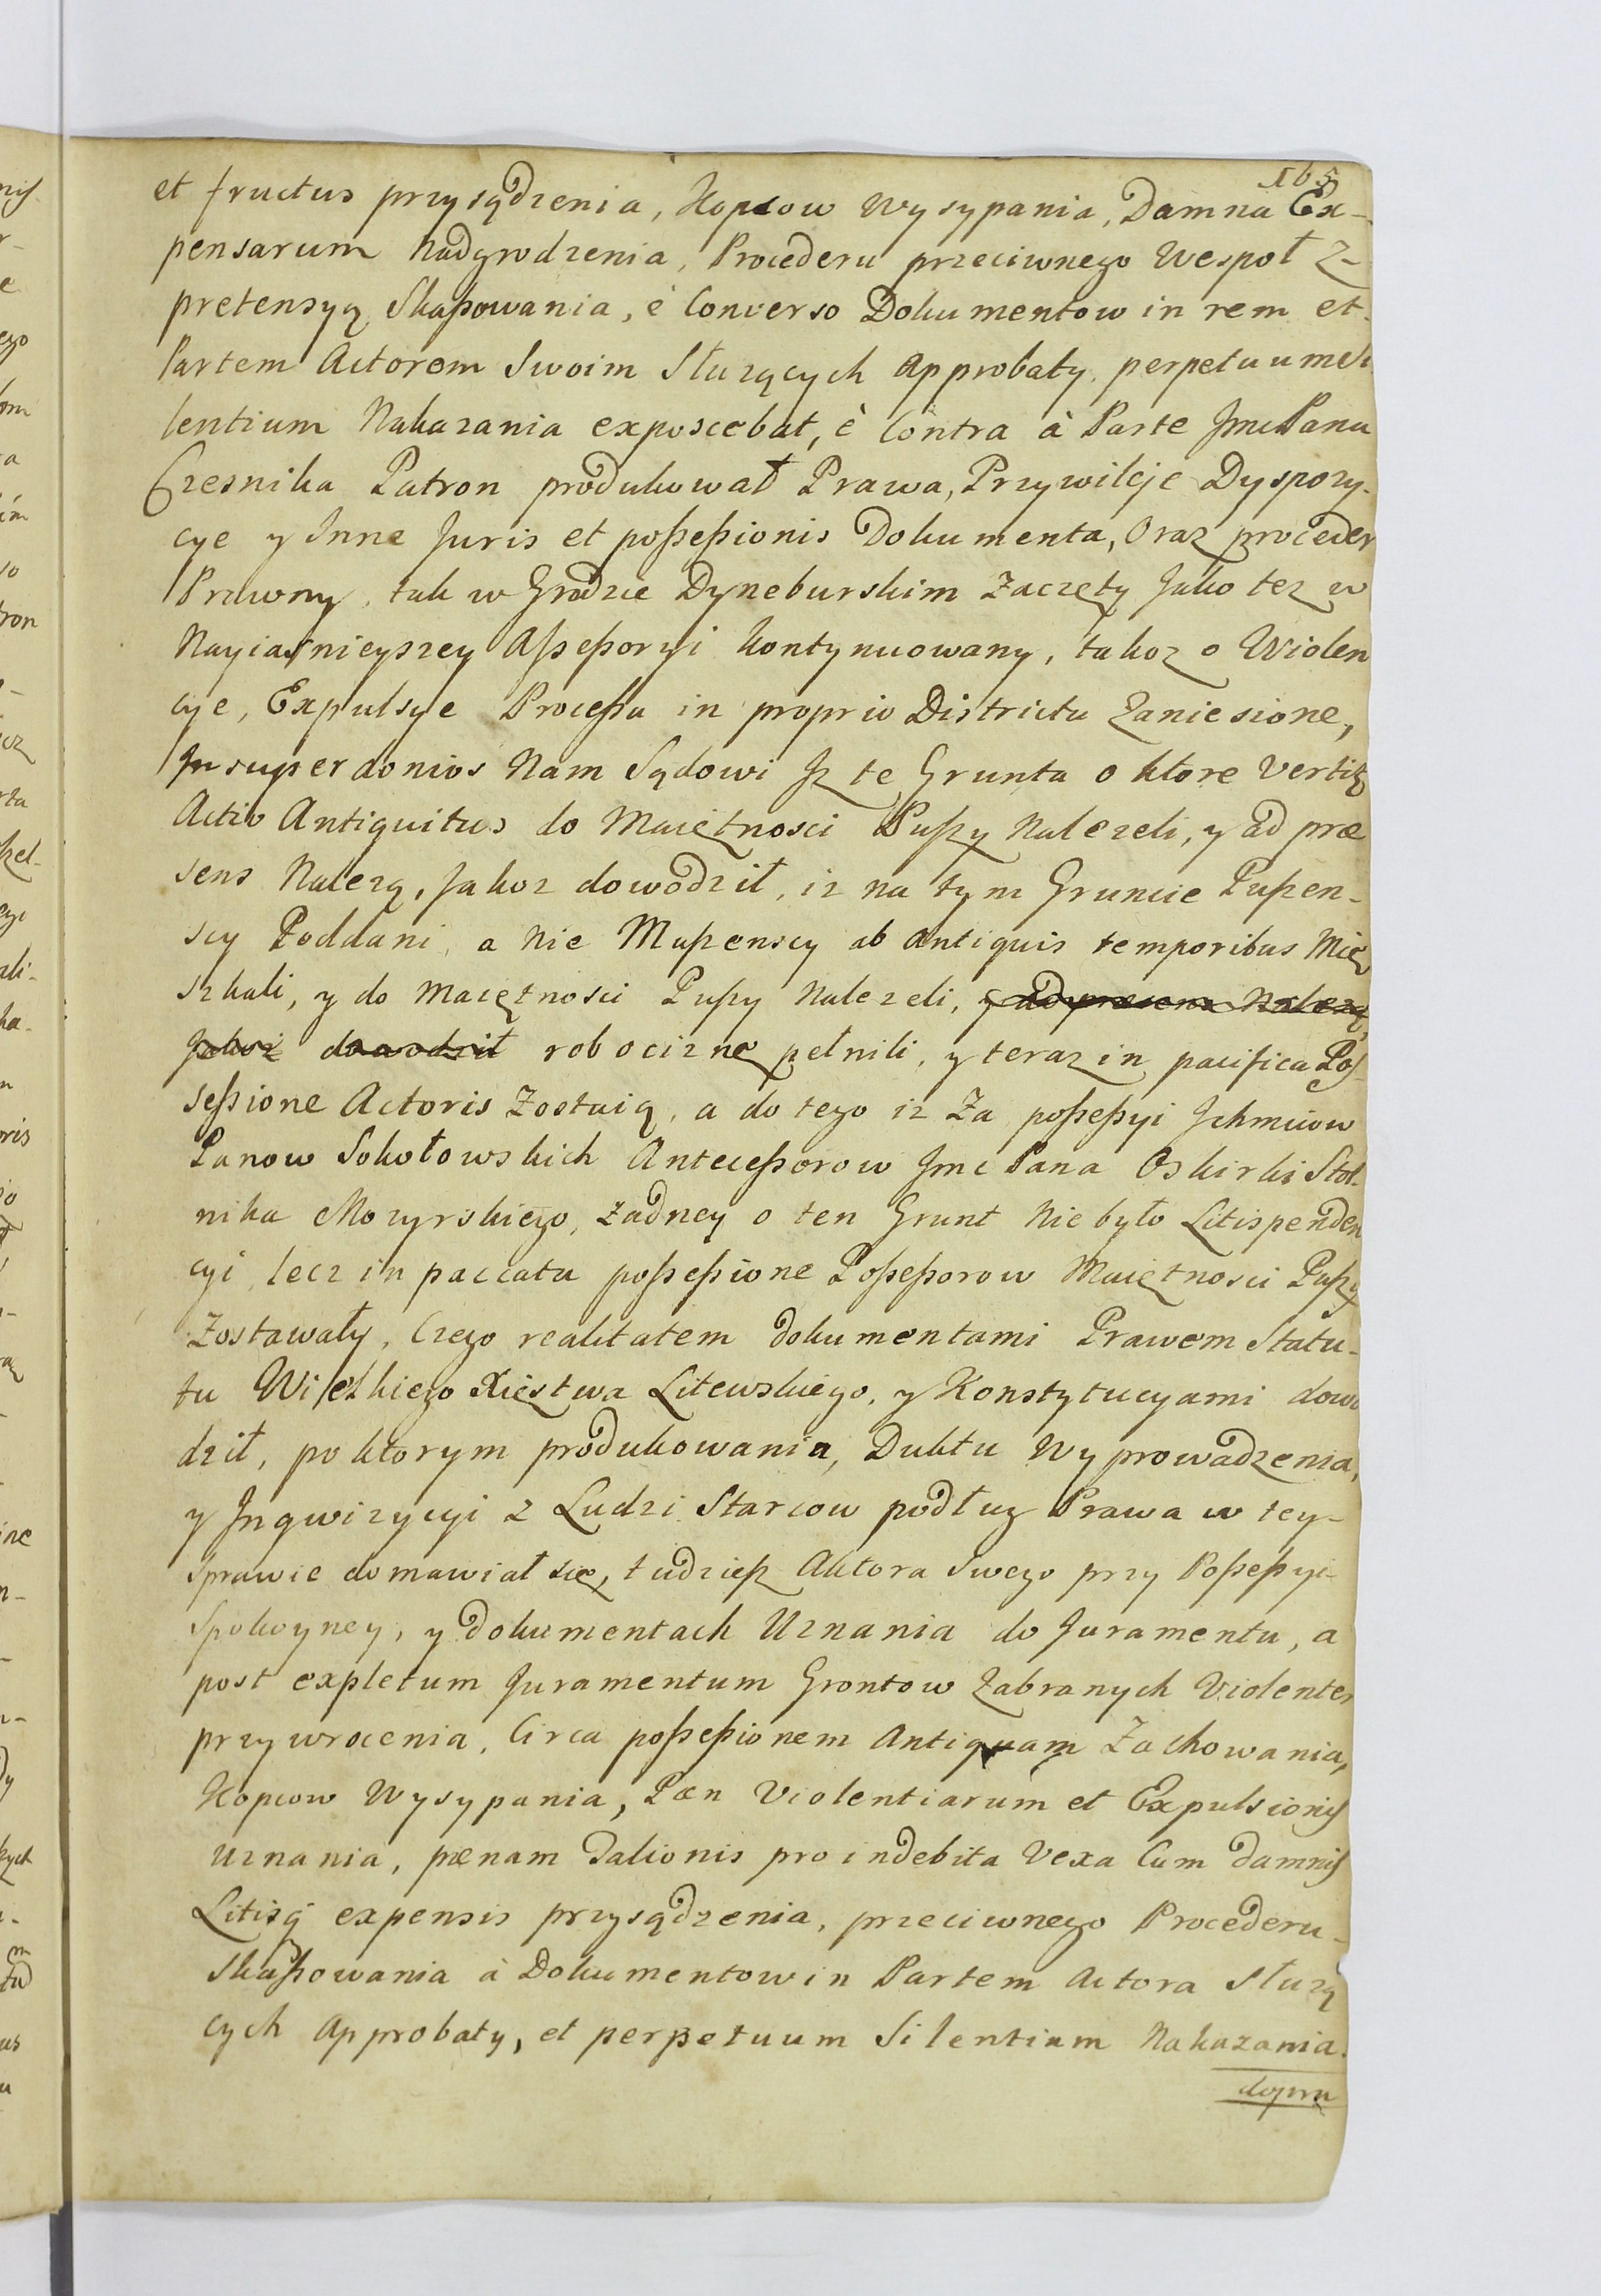 165
et fructus przysądzenia, Kopcow Wysypania, Damna Ex-
pensarum Nadgrodzenia, Procederu przeciwnego Wespoł z-
pretensyą Skaßowania, è Converso Dokumentow in rem et
Partem Actorem Swoim Słuzących Approbaty, perpetuum Si
lentium Nakazania exposcebat, è Contra à Parte Jmci Pana
Czesnika Patron produkował Prawa, Przywileje Dyspozy-
cye y Inne Juris et poßeßionis Dokumenta, Oraz proceder
Prawny, tak w Grodzie Dyneburskim Zaczęty Jako tez w
Nayiasnieyszey Aßeßoryi kontynuowany, takoz o Wiolen
cye, Expulsye Proceßa in proprio Districtu Zaniesione,
Insuper donios Nam Sądowi Jz te Grunta o ktore Vertitz
Actio Antiquitus do Maiętnosci Pußy Nalezeli, y ad præ
sens Nalezą, Jakoz dowodził, iz na tym Gruncie Pußen-
scy Poddani, a Nie Mußenscy ab antiquis temporibus Mię
szkali, y do Maiętnosci Pußy Nalezeli, y ad præsens Nalezą
Jakoz dowodził robociznę pełnili, y teraz in pacifica Pos
seßione Actoris Zostaią, a do tego iz Za poßeßyi Jchmciow
Panow Sokołowskich Anteceßorow Jmci Pana Oskirki Stol-
nika Mozyrskiego, zadney o ten Grunt Nie było Litispenden
cyi, lecz in paccata poßeßione Poßeßorow Maiętnosci Pußy
Zostawały, Czego realitatem dokumentami Prawem Statu-
tu Wielkiego Xięstwa Litewskiego, y Konstytucyami dowo
dził, po ktorym produkowania, Duktu Wyprowadzenia,
y Jnqwizycyi z Ludzi Starcow podług Prawa w tey-
sprawie domawiał się, tudzieß Aktora swego przy Poßeßyi-
Spokoyney, y dokumentach Uznania do Juramentu, a
post expletum Juramentum Grontow Zabranych Violenter
przywrocenia, Circa poßeßionem Antiquam Zachowania,
Kopcow Wysypania, Pæn Violentiarum et Expulsionis
Uznania, pænam Talionis pro indebita Vexa Cum damnis
Litisq expensis przysądzenia, przeciwnego Procederu-
Skaßowania à Dokumentow in Partem Actora Słuzą
cych Approbaty, et perpetuum Silentium Nakazania.